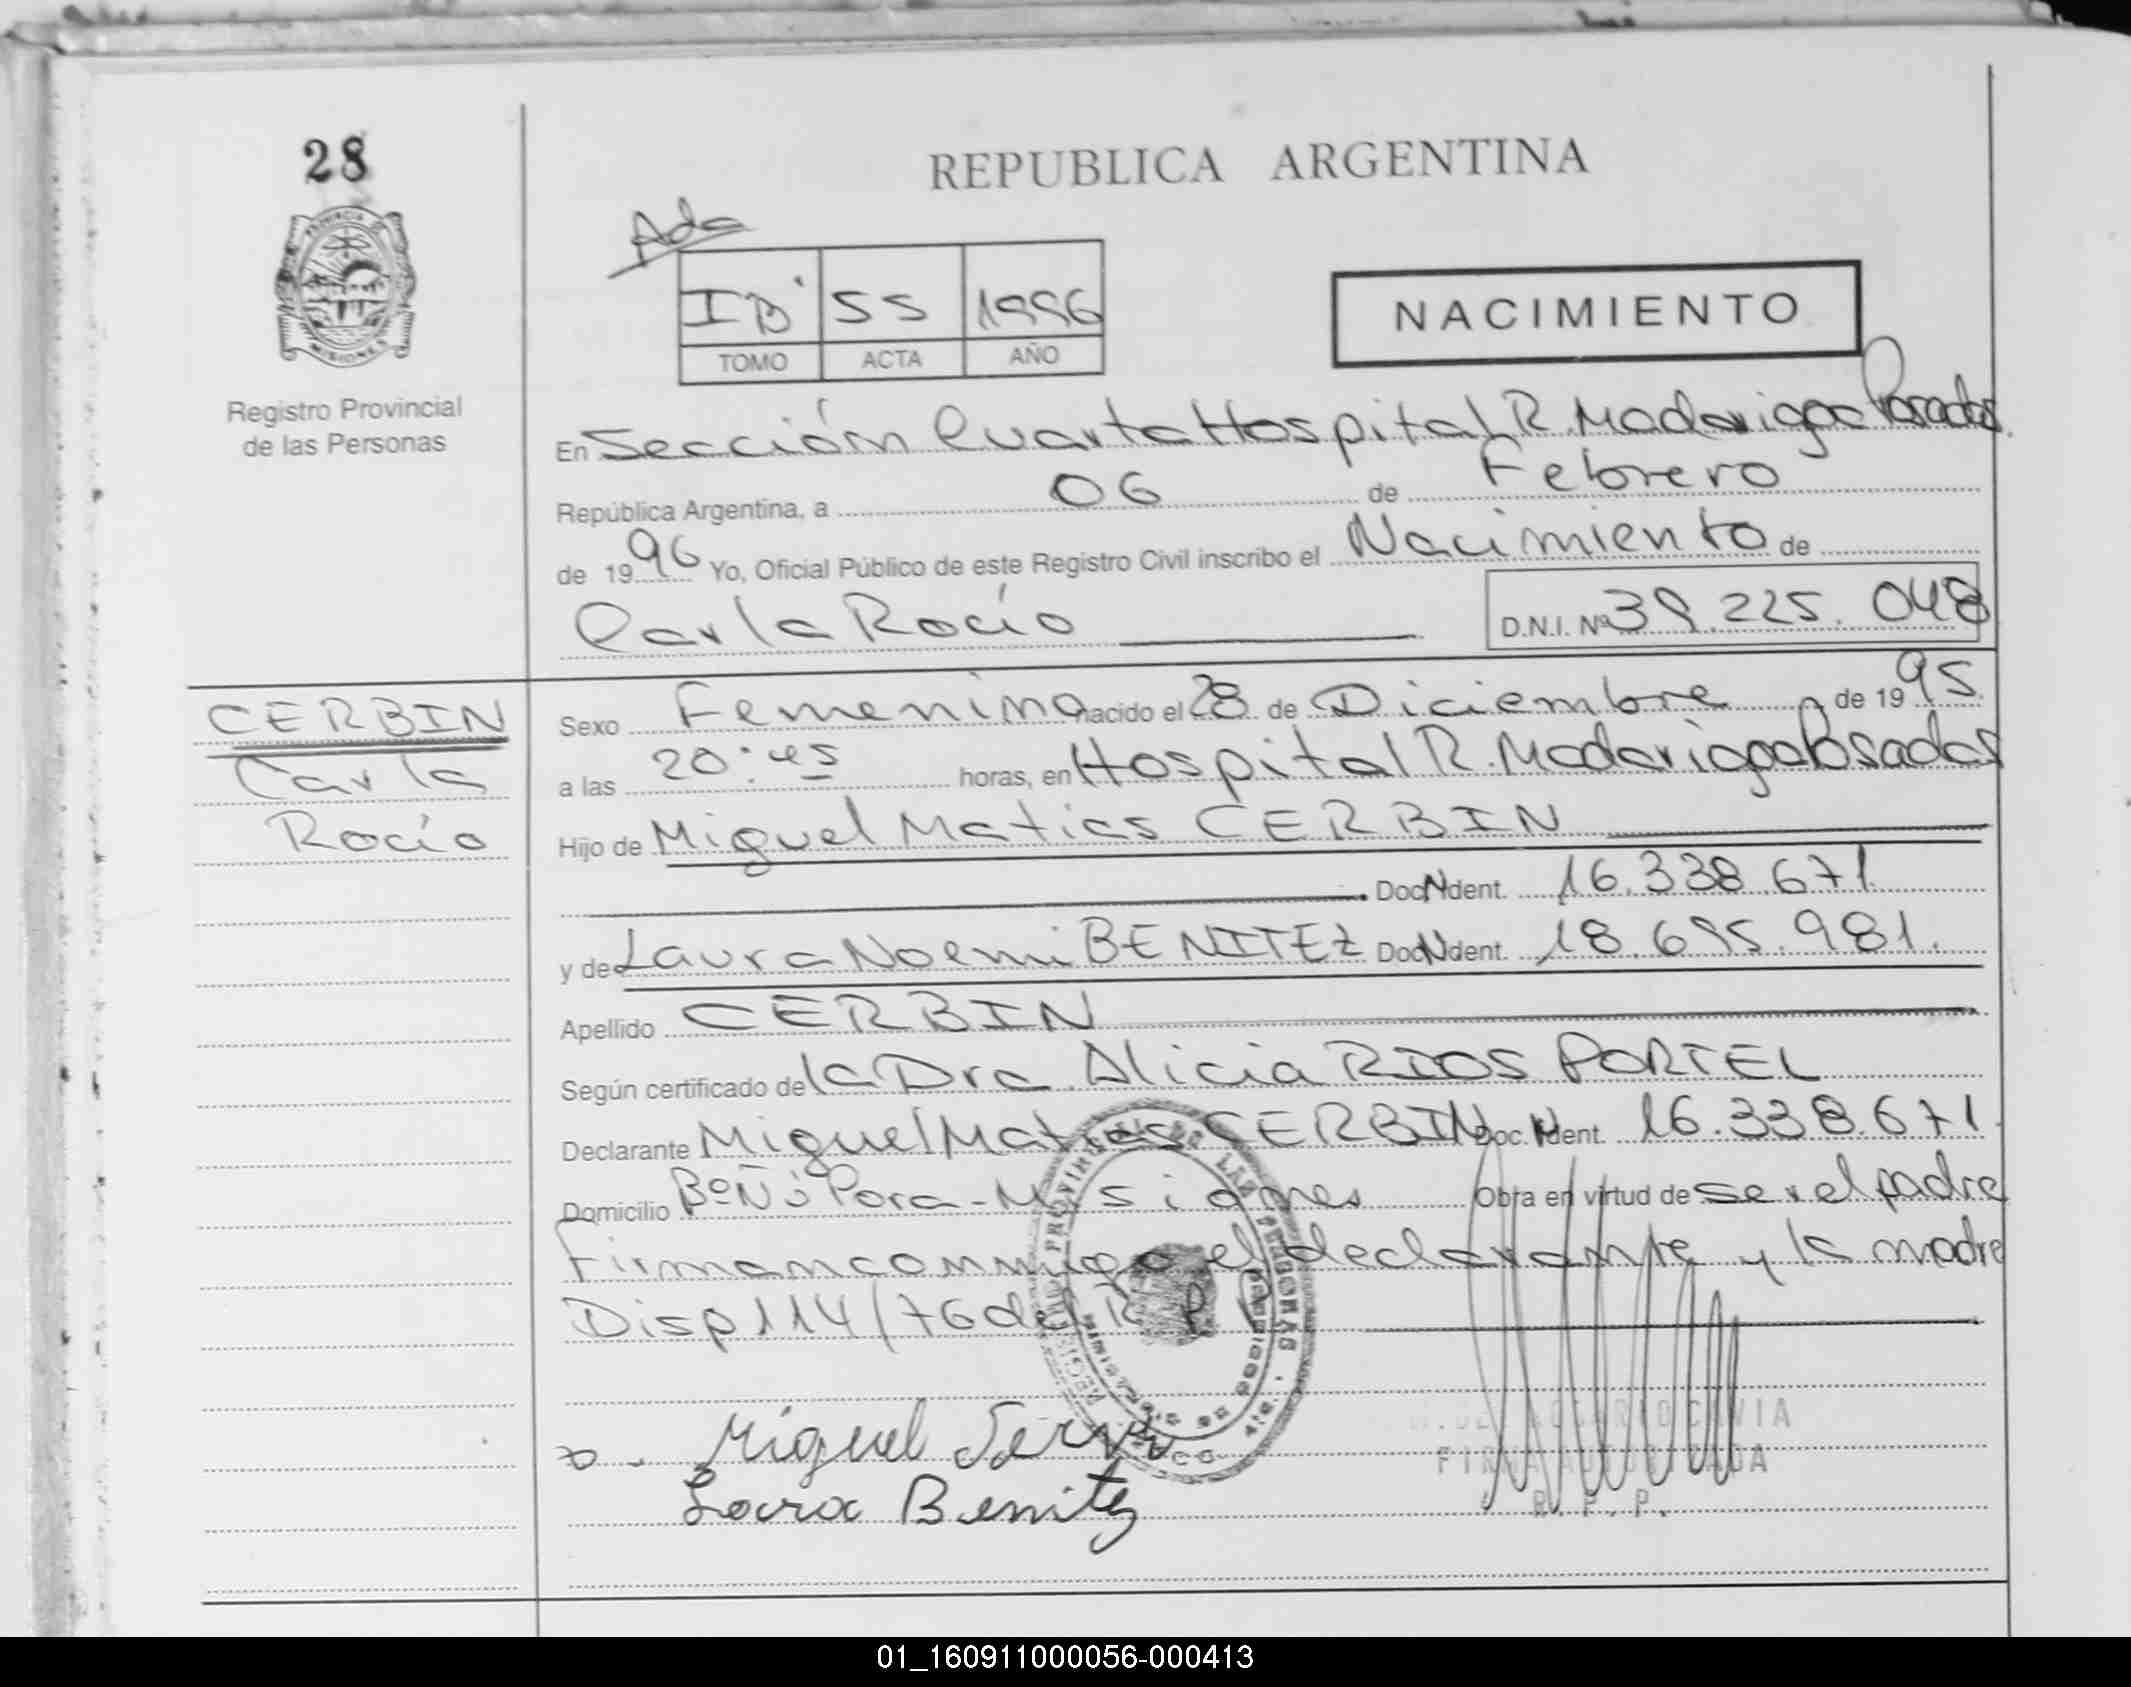 28
REPUBLICA ARGENTINA
Ada
IB' 55 1996
TOMO ACTA AÑO
NACIMIENTO
PROVINCIA DE
MISIONES
Registro Provincial
de las Personas
En Sección Cuarta Hospital R. Madariaga Posadas.
República Argentina, a 06 de Febrero
de 1996 Yo, Oficial Público de este Registro Civil inscribo el Nacimiento de
Carla Rocío D.N.I. Nº 39.225.048
CERBIN
Carla
Rocío
Sexo Femenino nacido el 28 de Diciembre de 1995.
a las 20:45 horas, en Hospital R. Madariaga Posadas
Hijo de Miguel Matias CERBIN
Doc. Ident. 16.338.671
y de Laura Noemi BENITEZ Doc. Ident. 18.695.981.
Apellido CERBIN
Según certificado de la Dra Alicia RIOS PORTEL
Declarante Miguel Matias CERBIN Doc. Ident. 16.338.671.
Domicilio Bº Ñu Pora - Misiones Obra en virtud de ser el padre
Firman conmigo el declarante y la madre
Disp 114/76 del R P P
Miguel
Laura Benitez
FIRMA AUTORIZADA
R. P. P.
01_160911000056-000413